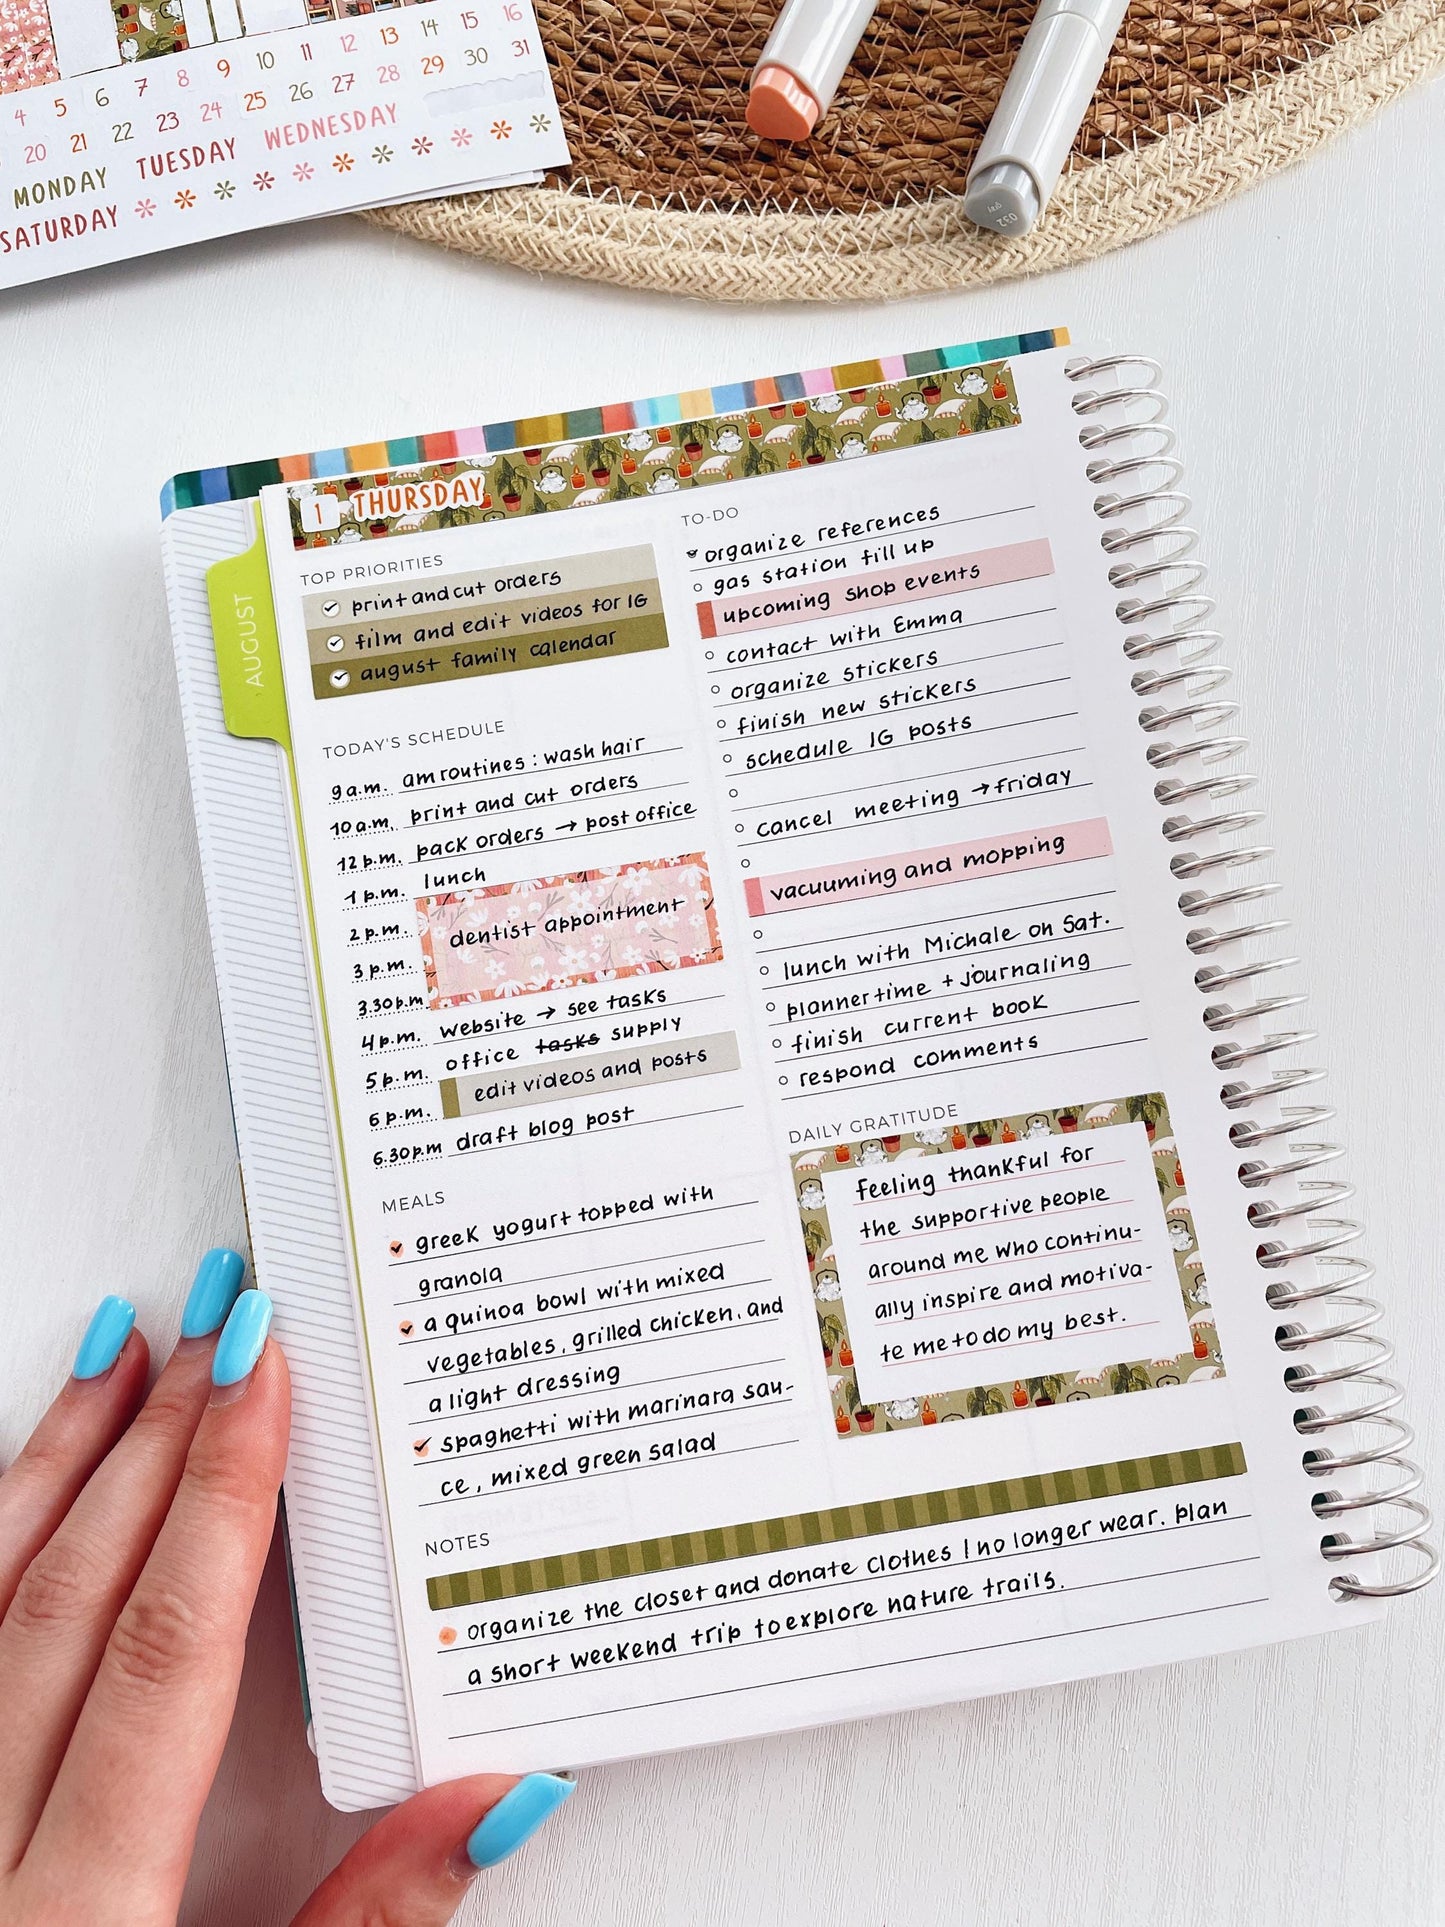 4 5 6 7 8 9 10 11 12 13 14 15 16
20 21 22 23 24 25 26 27 28 29 30 31
MONDAY TUESDAY WEDNESDAY
SATURDAY
032
AUGUST
1 THURSDAY
TOP PRIORITIES
print and cut orders
film and edit videos for IG
august family calendar
TODAY'S SCHEDULE
9 a.m. am routines : wash hair
10 a.m. print and cut orders
12 p.m. pack orders → post office
1 p.m. lunch
2 p.m.
dentist appointment
3 p.m.
3.30 p.m.
4 p.m. website → see tasks
5 p.m. office tasks supply
6 p.m. edit videos and posts
6.30 p.m draft blog post
MEALS
greek yogurt topped with
granola
a quinoa bowl with mixed
vegetables, grilled chicken, and
a light dressing
spaghetti with marinara sau-
ce, mixed green salad
TO-DO
organize references
gas station fill up
upcoming shop events
contact with Emma
organize stickers
finish new stickers
schedule IG posts
cancel meeting → friday
vacuuming and mopping
lunch with Michale on Sat.
planner time + journaling
finish current book
respond comments
DAILY GRATITUDE
feeling thankful for
the supportive people
around me who continu-
ally inspire and motiva-
te me to do my best.
NOTES
organize the closet and donate clothes I no longer wear. plan
a short weekend trip to explore nature trails.